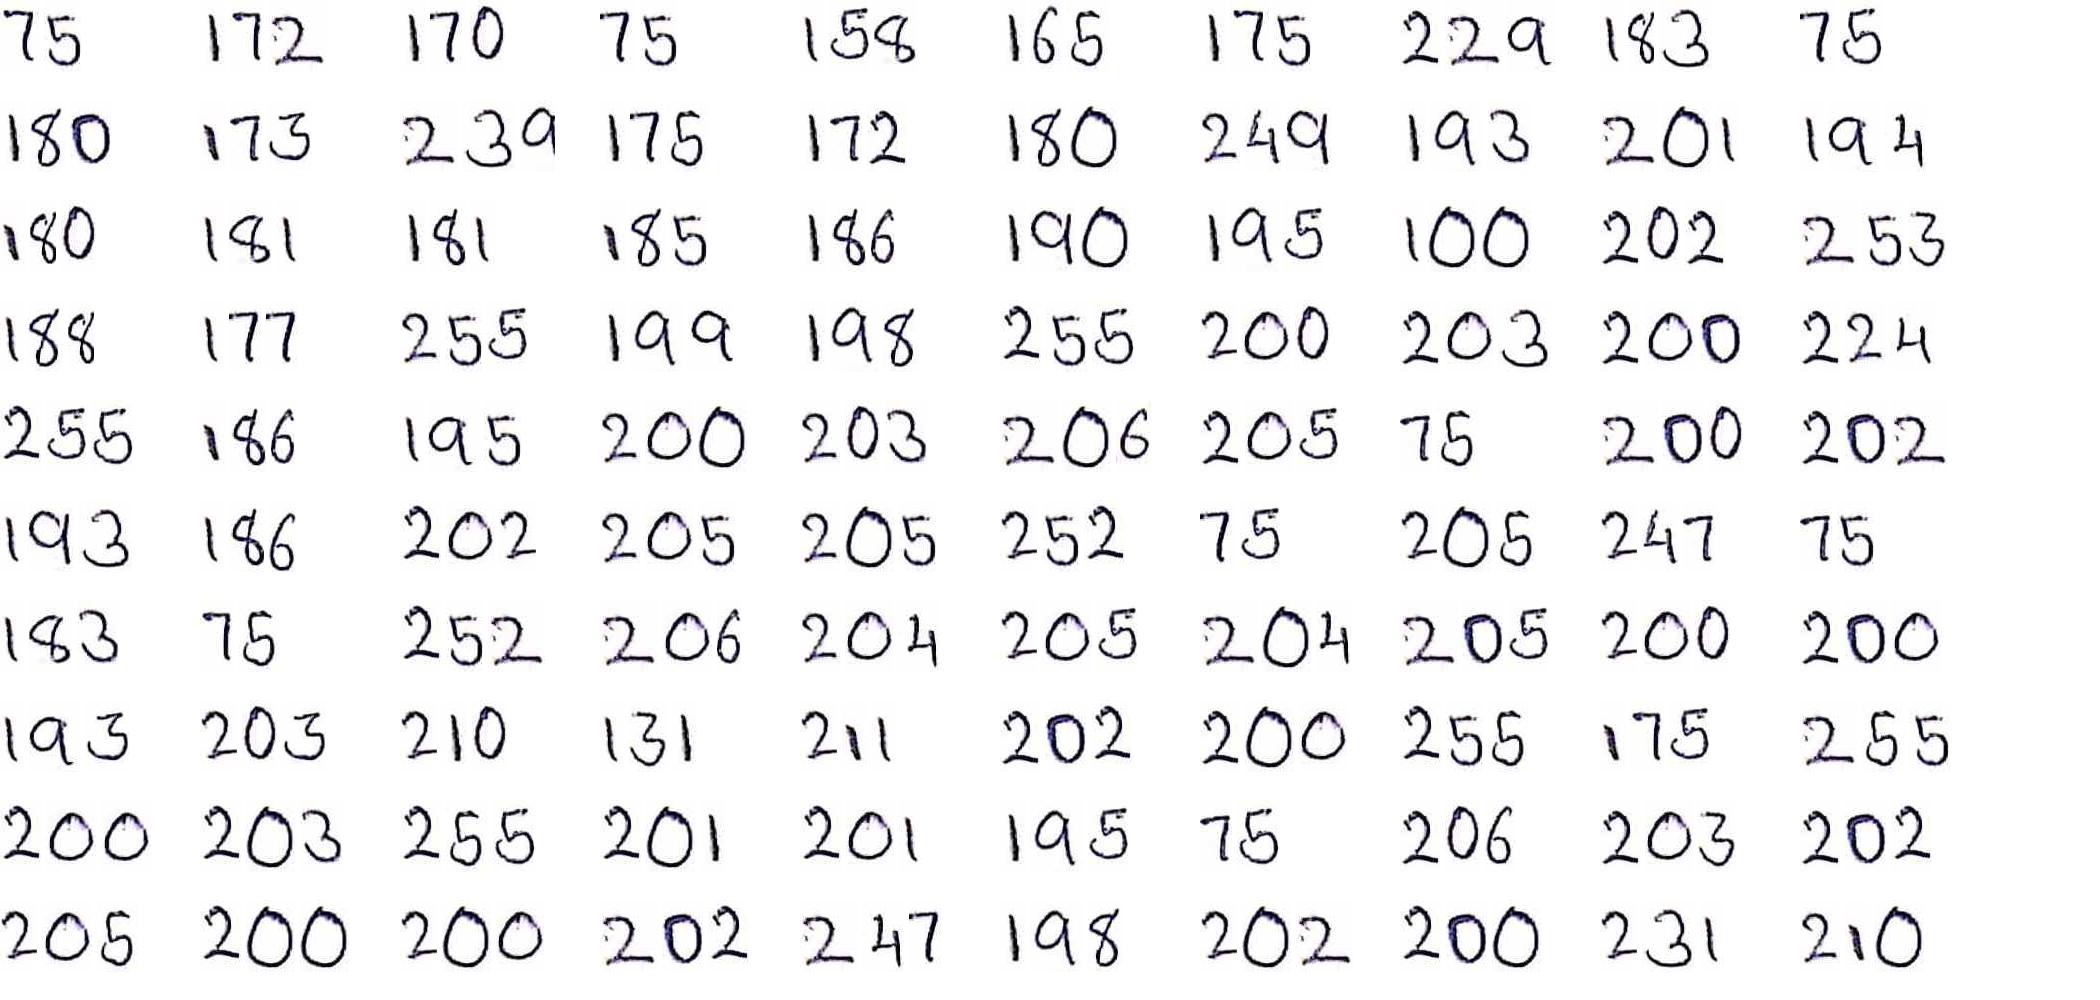 75 172 170 75 158 165 175 229 183 75
180 173 239 175 172 180 249 193 201 194
180 181 181 185 186 190 195 100 202 253
188 177 255 199 198 255 200 203 200 224
255 186 195 200 203 206 205 75 200 202
193 186 202 205 205 252 75 205 247 75
183 75 252 206 204 205 204 205 200 200
193 203 210 131 211 202 200 255 175 255
200 203 255 201 201 195 75 206 203 202
205 200 200 202 247 198 202 200 231 210